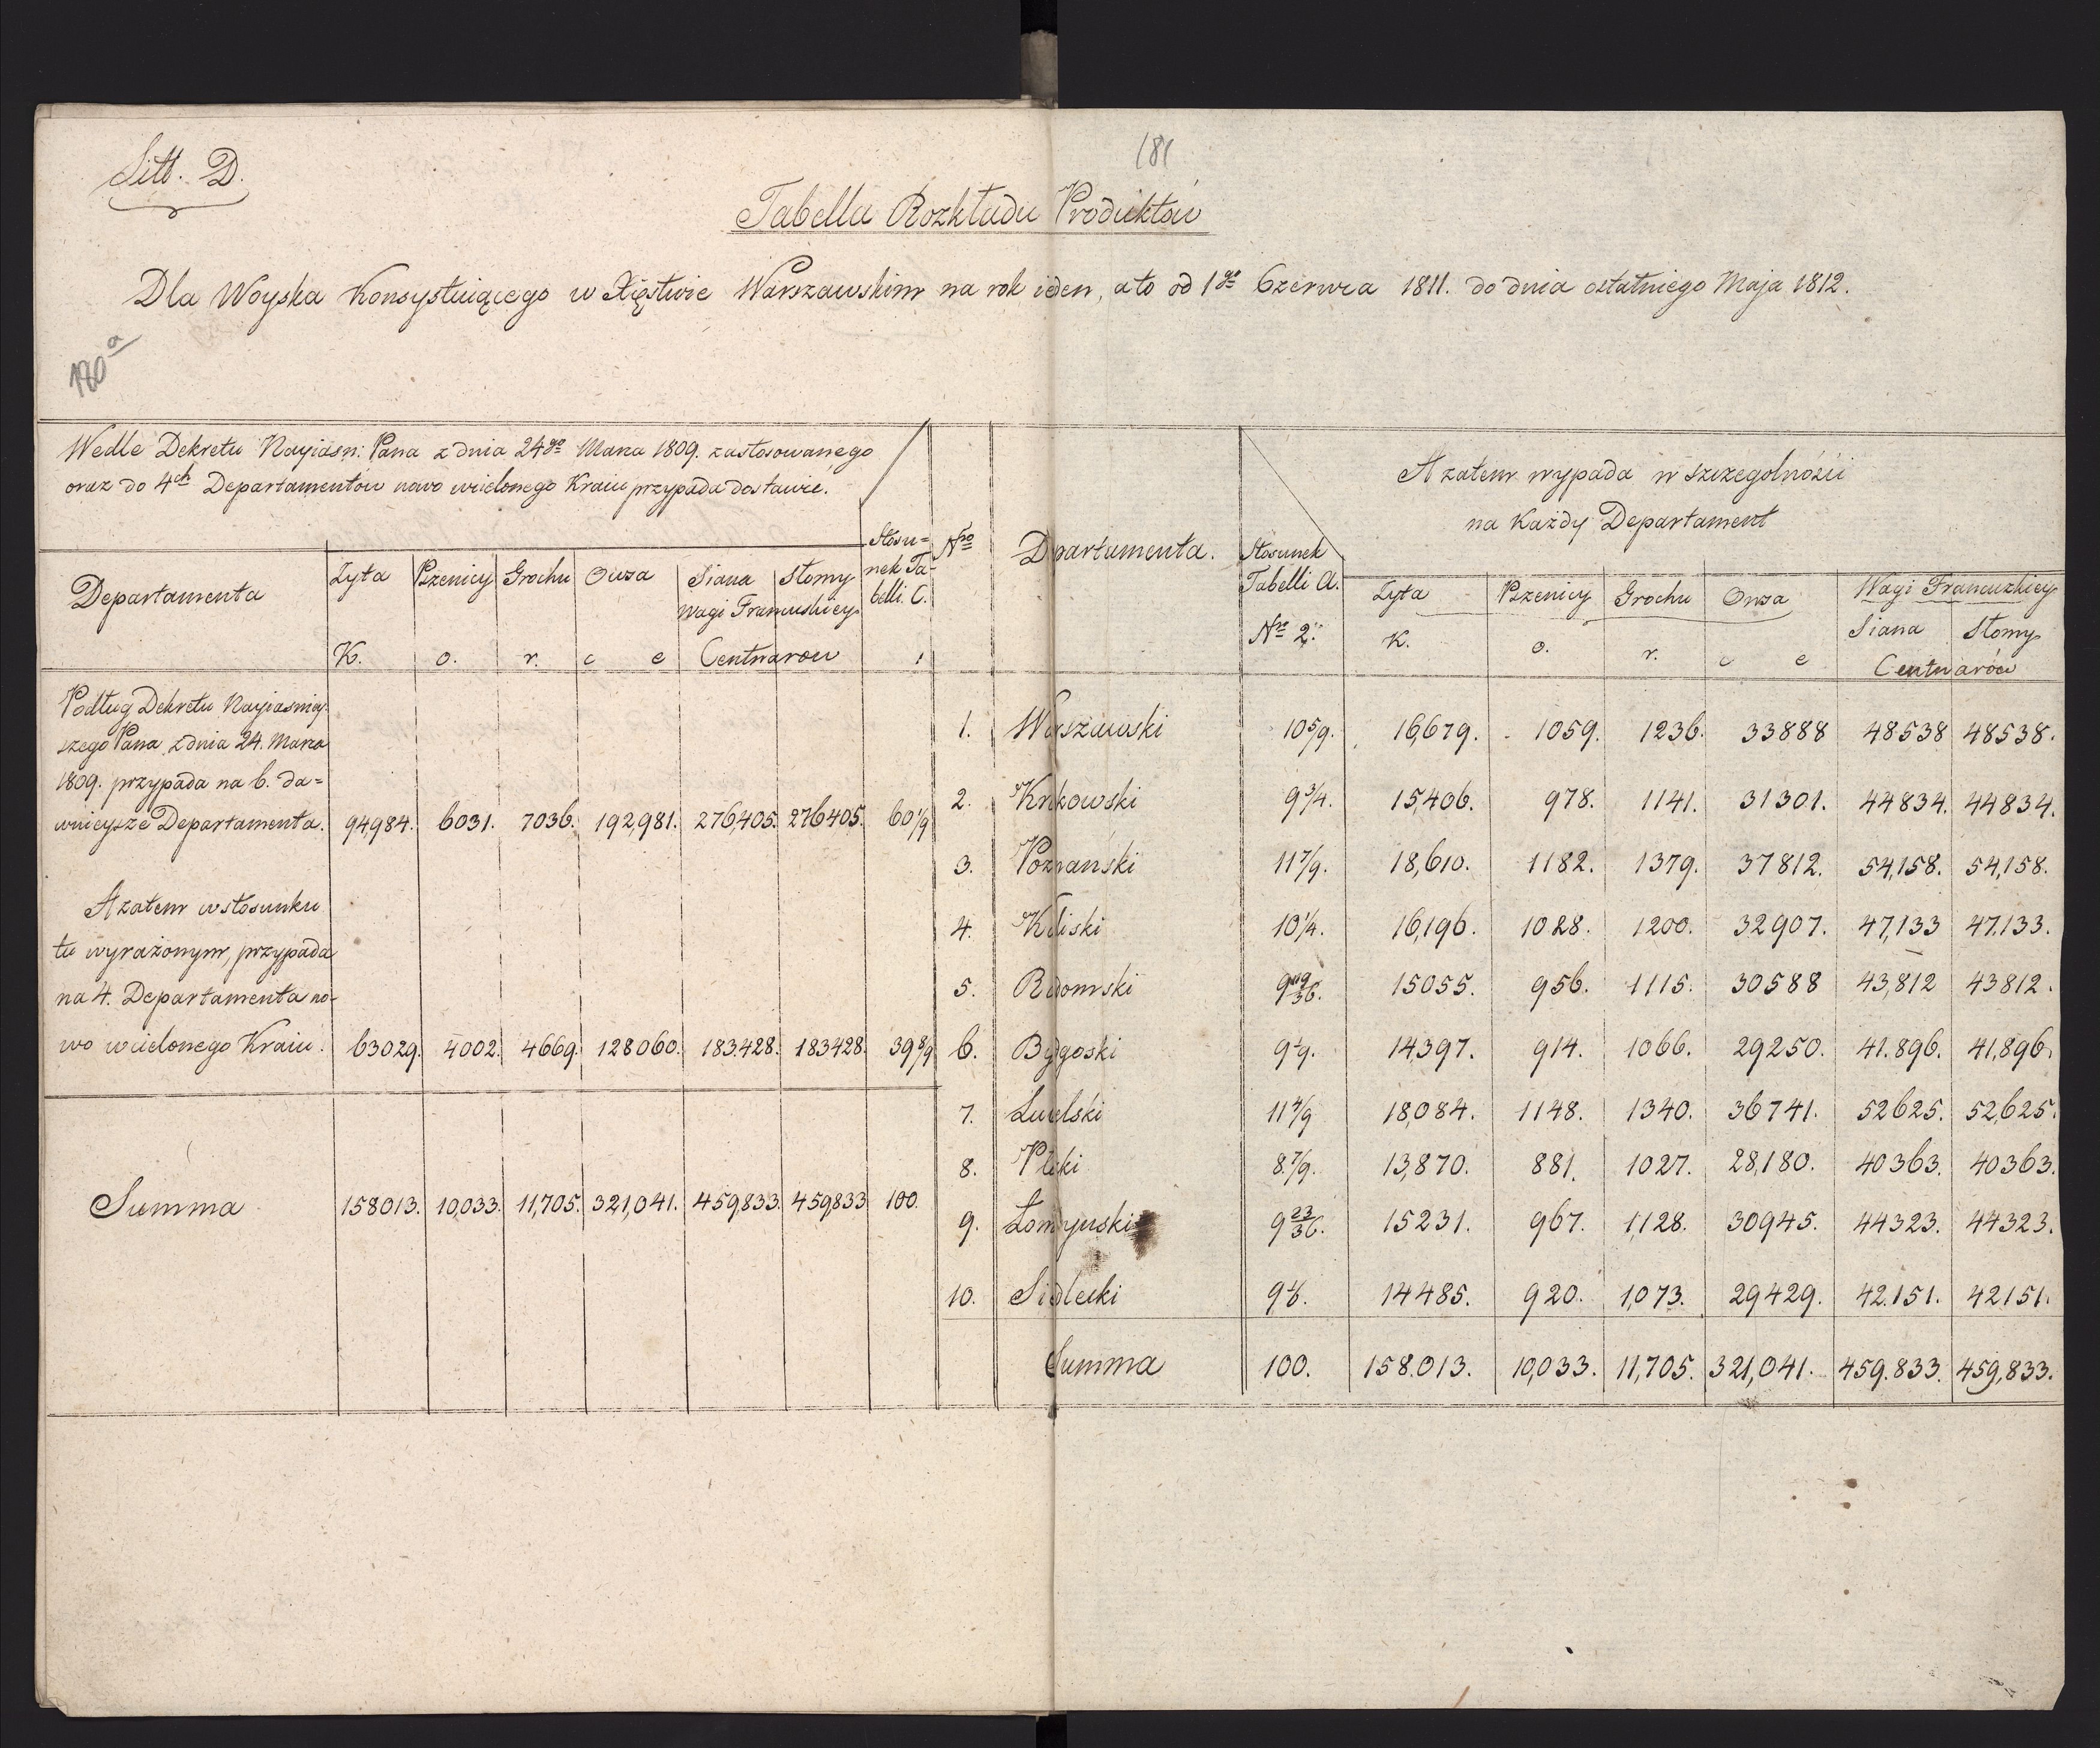 Litt. D.
181
Tabella Rozkładu Produktów
Dla Woyska Konsystuiącego w Xięstwie Warszawskim na rok ieden, a to od 1go Czerwca 1811. do dnia ostatniego Maja 1812.
180a
Wedle Dekretu Nayiasn: Pana z dnia 24go Marca 1809. zastosowanego
oraz do 4ch Departamentów nowo wcielonego Kraiu przypada dostawie.
Departamenta | Żyta | Pszenicy | Grochu | Owsa | Siana | Słomy | Stosu=
wagi Francuskiey | nek Ta=
belli. C.
K. o. r. c e Centnarow
Podług Dekretu Nayiasniey=
szego Pana z dnia 24. Marca
1809. przypada na 6. da=
wnieysze Departamenta. | 94,984. | 6031. | 7036. | 192,981. | 276,405. | 276405. | 60 1/9
A zatem w stosunku
tu wyrażonym, przypada
na 4. Departamenta no=
wo wcielonego Kraiu. | 63029. | 4002. | 4669. | 128060. | 183428. | 183428. | 39 8/9
Summa | 158013. | 10,033. | 11,705. | 321,041. | 459,833. | 459,833 | 100.
Nro | Dpartamenta. | Stosunek
Tabelli A.
Nro 2. | A zatem wypada w szczegolności
na Każdy Departament
Żyta | Pszenicy | Grochu | Owsa | Wagi Francuzkiey
Siana | Słomy
K. o. r. c e Centnarów
1. | Warszawski | 10 5/9. | 16,679. | 1059. | 1236. | 33888 | 48538 | 48538.
2. | Krkowski | 9 3/4. | 15,406. | 978. | 1141. | 31301. | 44834. | 44834.
3. | Poznański | 11 7/9. | 18,610. | 1182. | 1379. | 37812. | 54,158. | 54,158.
4. | Kaliski | 10 1/4. | 16,196. | 1028. | 1200. | 32907. | 47,133 | 47.133.
5. | Rdomski | 9 19/36. | 15055. | 956. | 1115. | 30588 | 43,812 | 43812.
6. | Bydgoski | 9 1/9. | 14,397. | 914. | 1066. | 29250. | 41.896. | 41,896.
7. | Luelski | 11 4/9 | 18,084. | 1148. | 1340. | 36741. | 52625. | 52,625.
8. | Płcki | 8. 7/9. | 13,870. | 881. | 1027. | 28,180. | 40363. | 40363.
9. | Łomżyński | 9 23/36. | 15231. | 967. | 1,128. | 30945. | 44323. | 44323.
10. | Sidlecki | 9 1/6. | 14485. | 920. | 1,073. | 29429. | 42.151. | 42151.
Summa | 100. | 158.013. | 10,033. | 11,705. | 321,041. | 459.833. | 459,833.